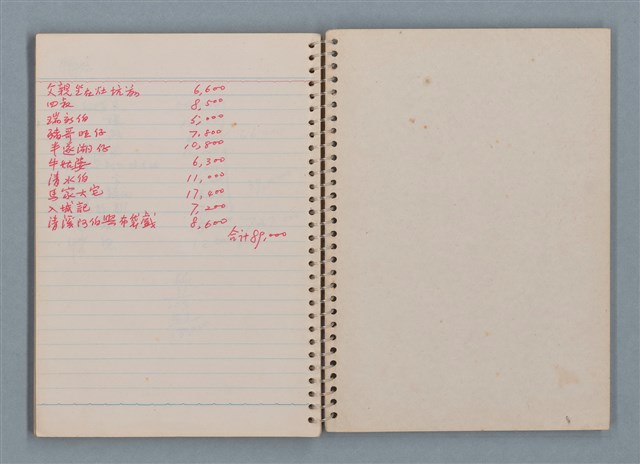 父親坐在灶坑前 6,600
四叔 8,500
瑞新伯 5,000
豬哥旺仔 7,800
半遂湖仔 10,800
牛姑婆 6,300
清水伯 11,000
馬家大宅 17,400
入城記 7,200
清溪阿伯與布袋戲 8,600
合計89,000